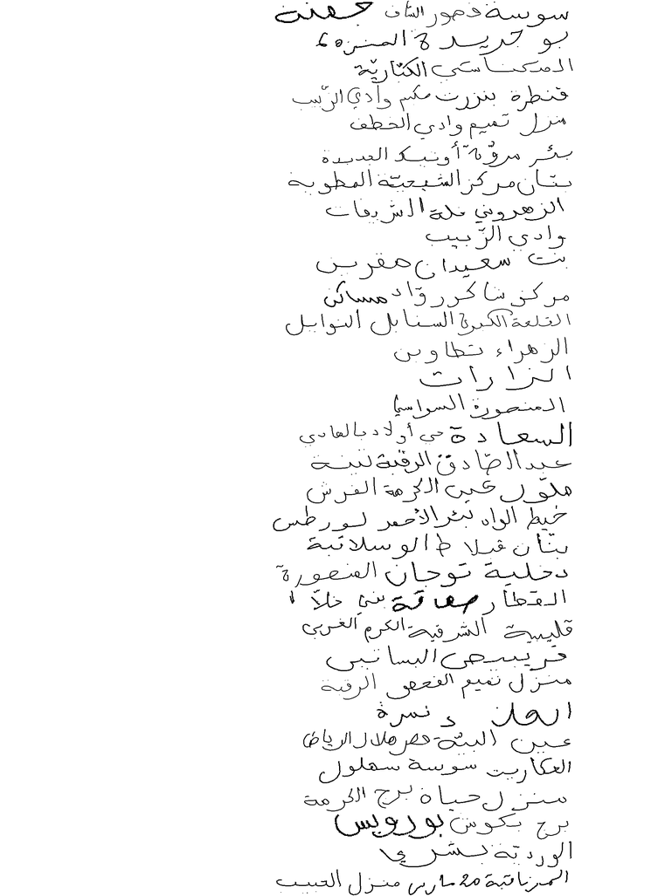 سوسة قصور الساف جفنة
بو جريدة المنزه 6
المتكناسي الكتارية
قنطرة بنزرت وادي الزيب
منزل تميم وادي الخطف
بئر مروة أونيك الجديدة
بنان مركز الشيحية المطوية
الزهروني قلة الشريفات
وادي الزبيب
بنت سعيدان مقرين
مركز شاكر رواد مساكن
القلعة الكبرى السنابل النوايل
الزهراء تطاوين
الزارات
المنصورة السواسي
السعادة حي أولاد بالهادي
عبد الصادق الرقبة نبينة
ملول عين الكرمة الفرش
خيط الواد بئر الأحمر لورطس
بنان قبلاط الوسلاتية
دخلية توجان المنصورة
القطار صفاقة بني خلاد
قليبية الشرفية الكرم الغربي
البساتين
منزل تميم الفحص الرقبة
نمرة
عين البيئة قصر هلال الرياض
العكاريت سوسة سهلول
منزل حياة برج الكرمة
برج بكوش بورويس
الوردية بشري
المرناقية 20 مارس منزل الحبيب